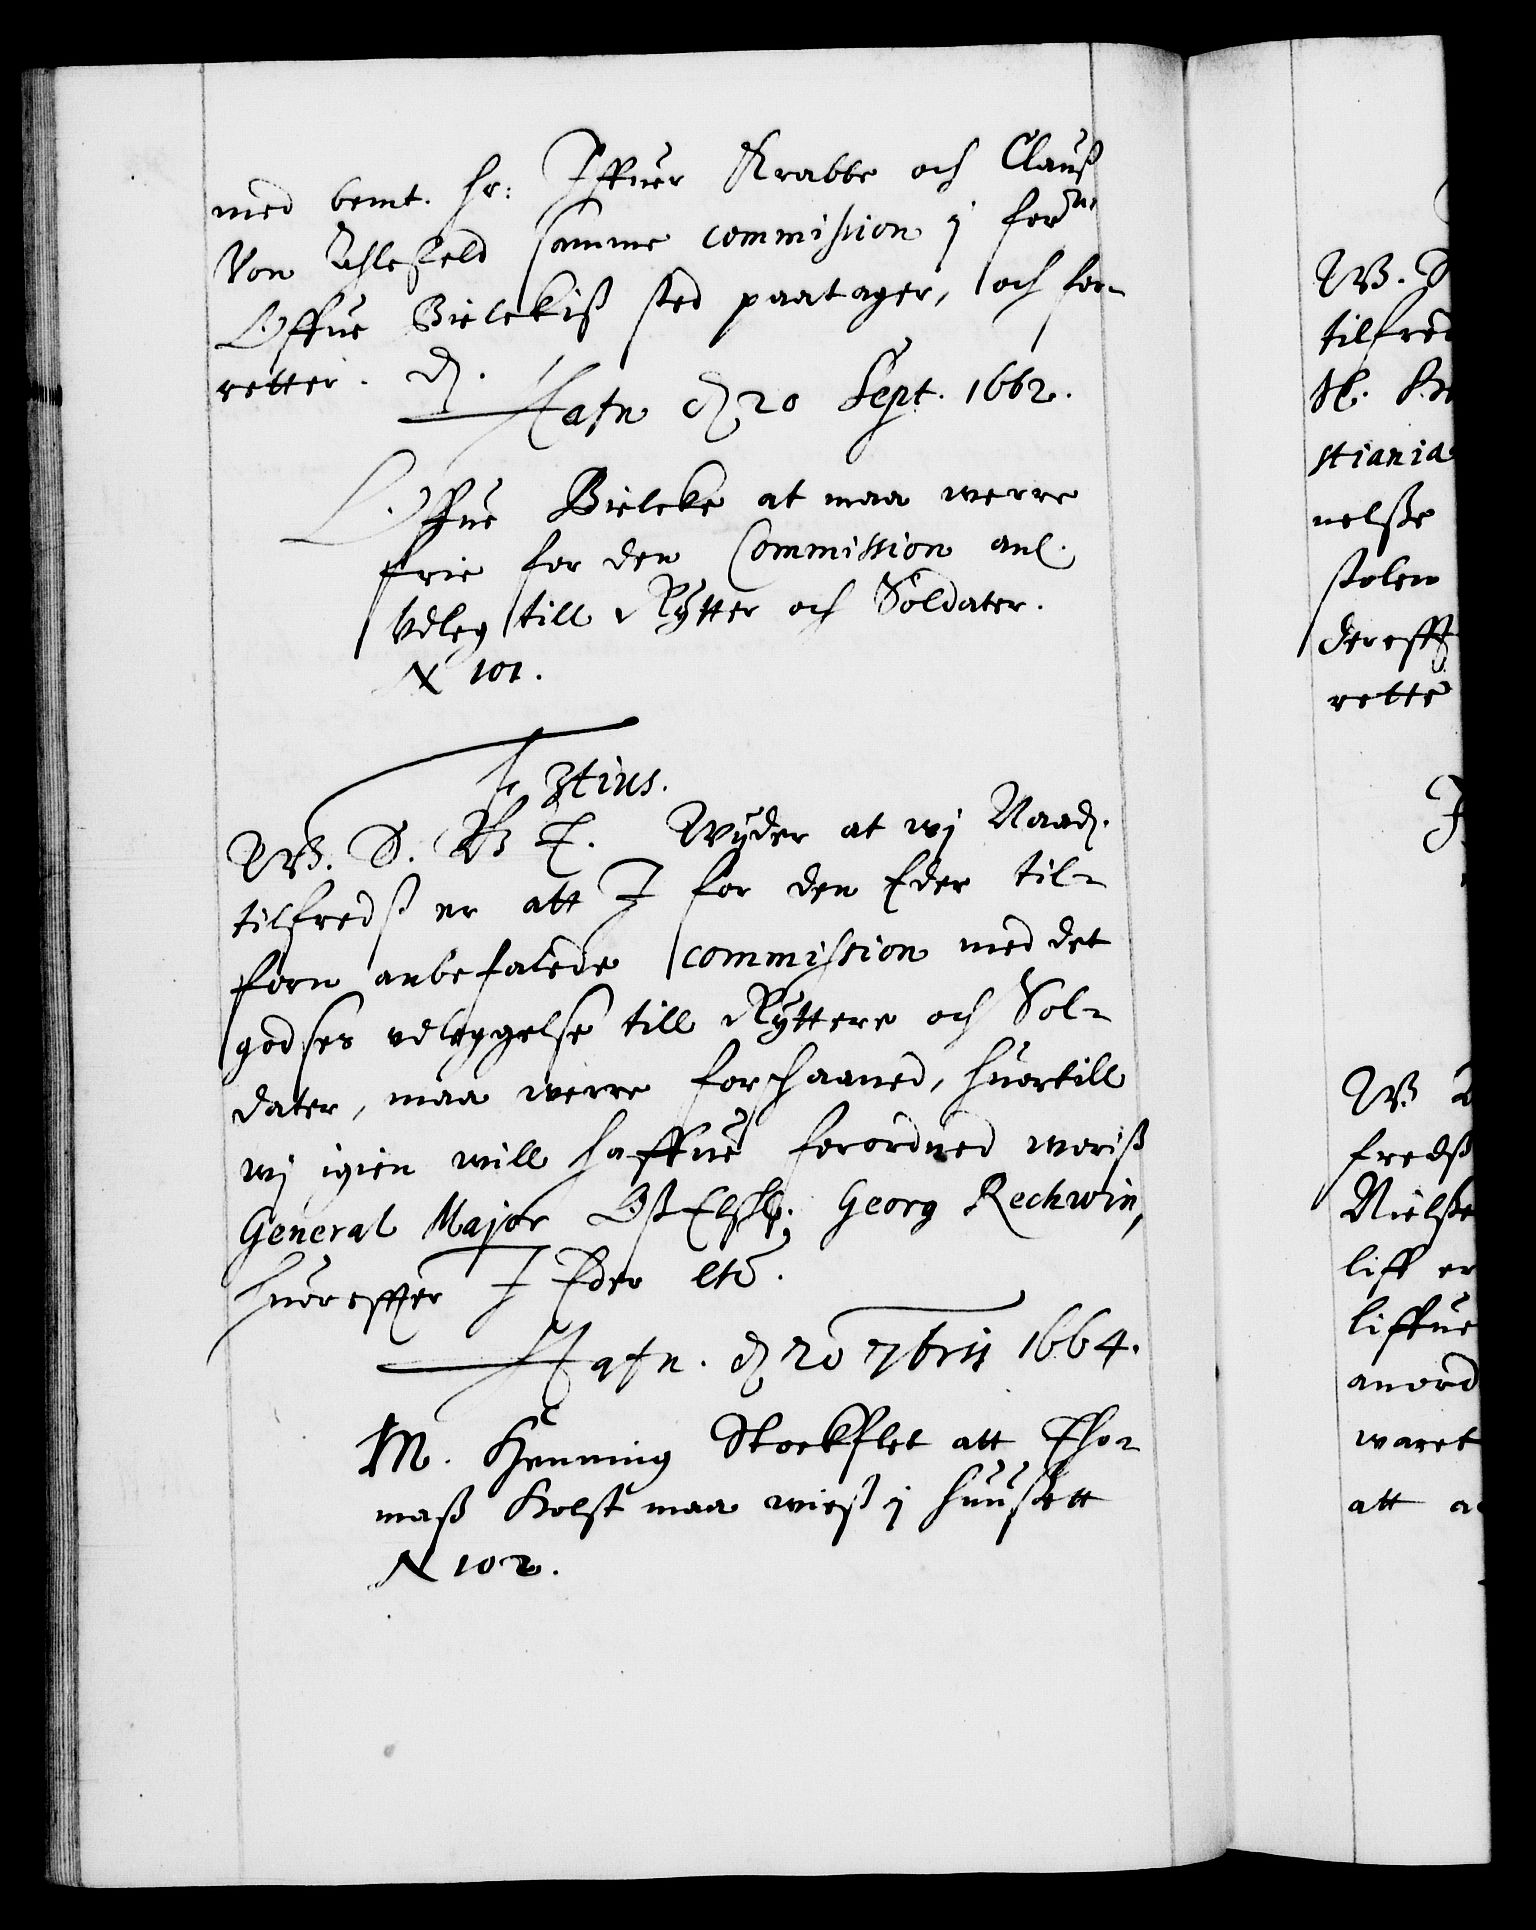 med bemt. Hr: Iffuer Krabbe och Clauß
Von Ahlefeld samme commission j forne
Offue Bielckiß sted paatager, och for-
retter. D.
Hafn d 20 Sept. 1662.
Offue Bielcke at maa werre
frie for den Commission anl.
Vdleg till Rytter och Soldater.
N 101.
F 3tius.
W. G. B T. Wijder at wj Naad.
tilfredß er att I for den Eder til-
forn anbefalede commission med det
godses vdleggelse till Ryttere och Sol-
dater, maa werre forschaaned, huortill
wj igien will haffue forordned woriß
General Major Oß Elskl: Georg Rechwin,
huoreffter I Eder etc.
Hafn. d 20 7briß 1664.
M. Henning Stockflet att Tho-
maß Holst maa wieß j huußett
N 102.
W.
tilfred
stiania
nelße
stolen
dereffter
rette
W
fredß
Nielße
liff er
liffue
anord
waret
att a